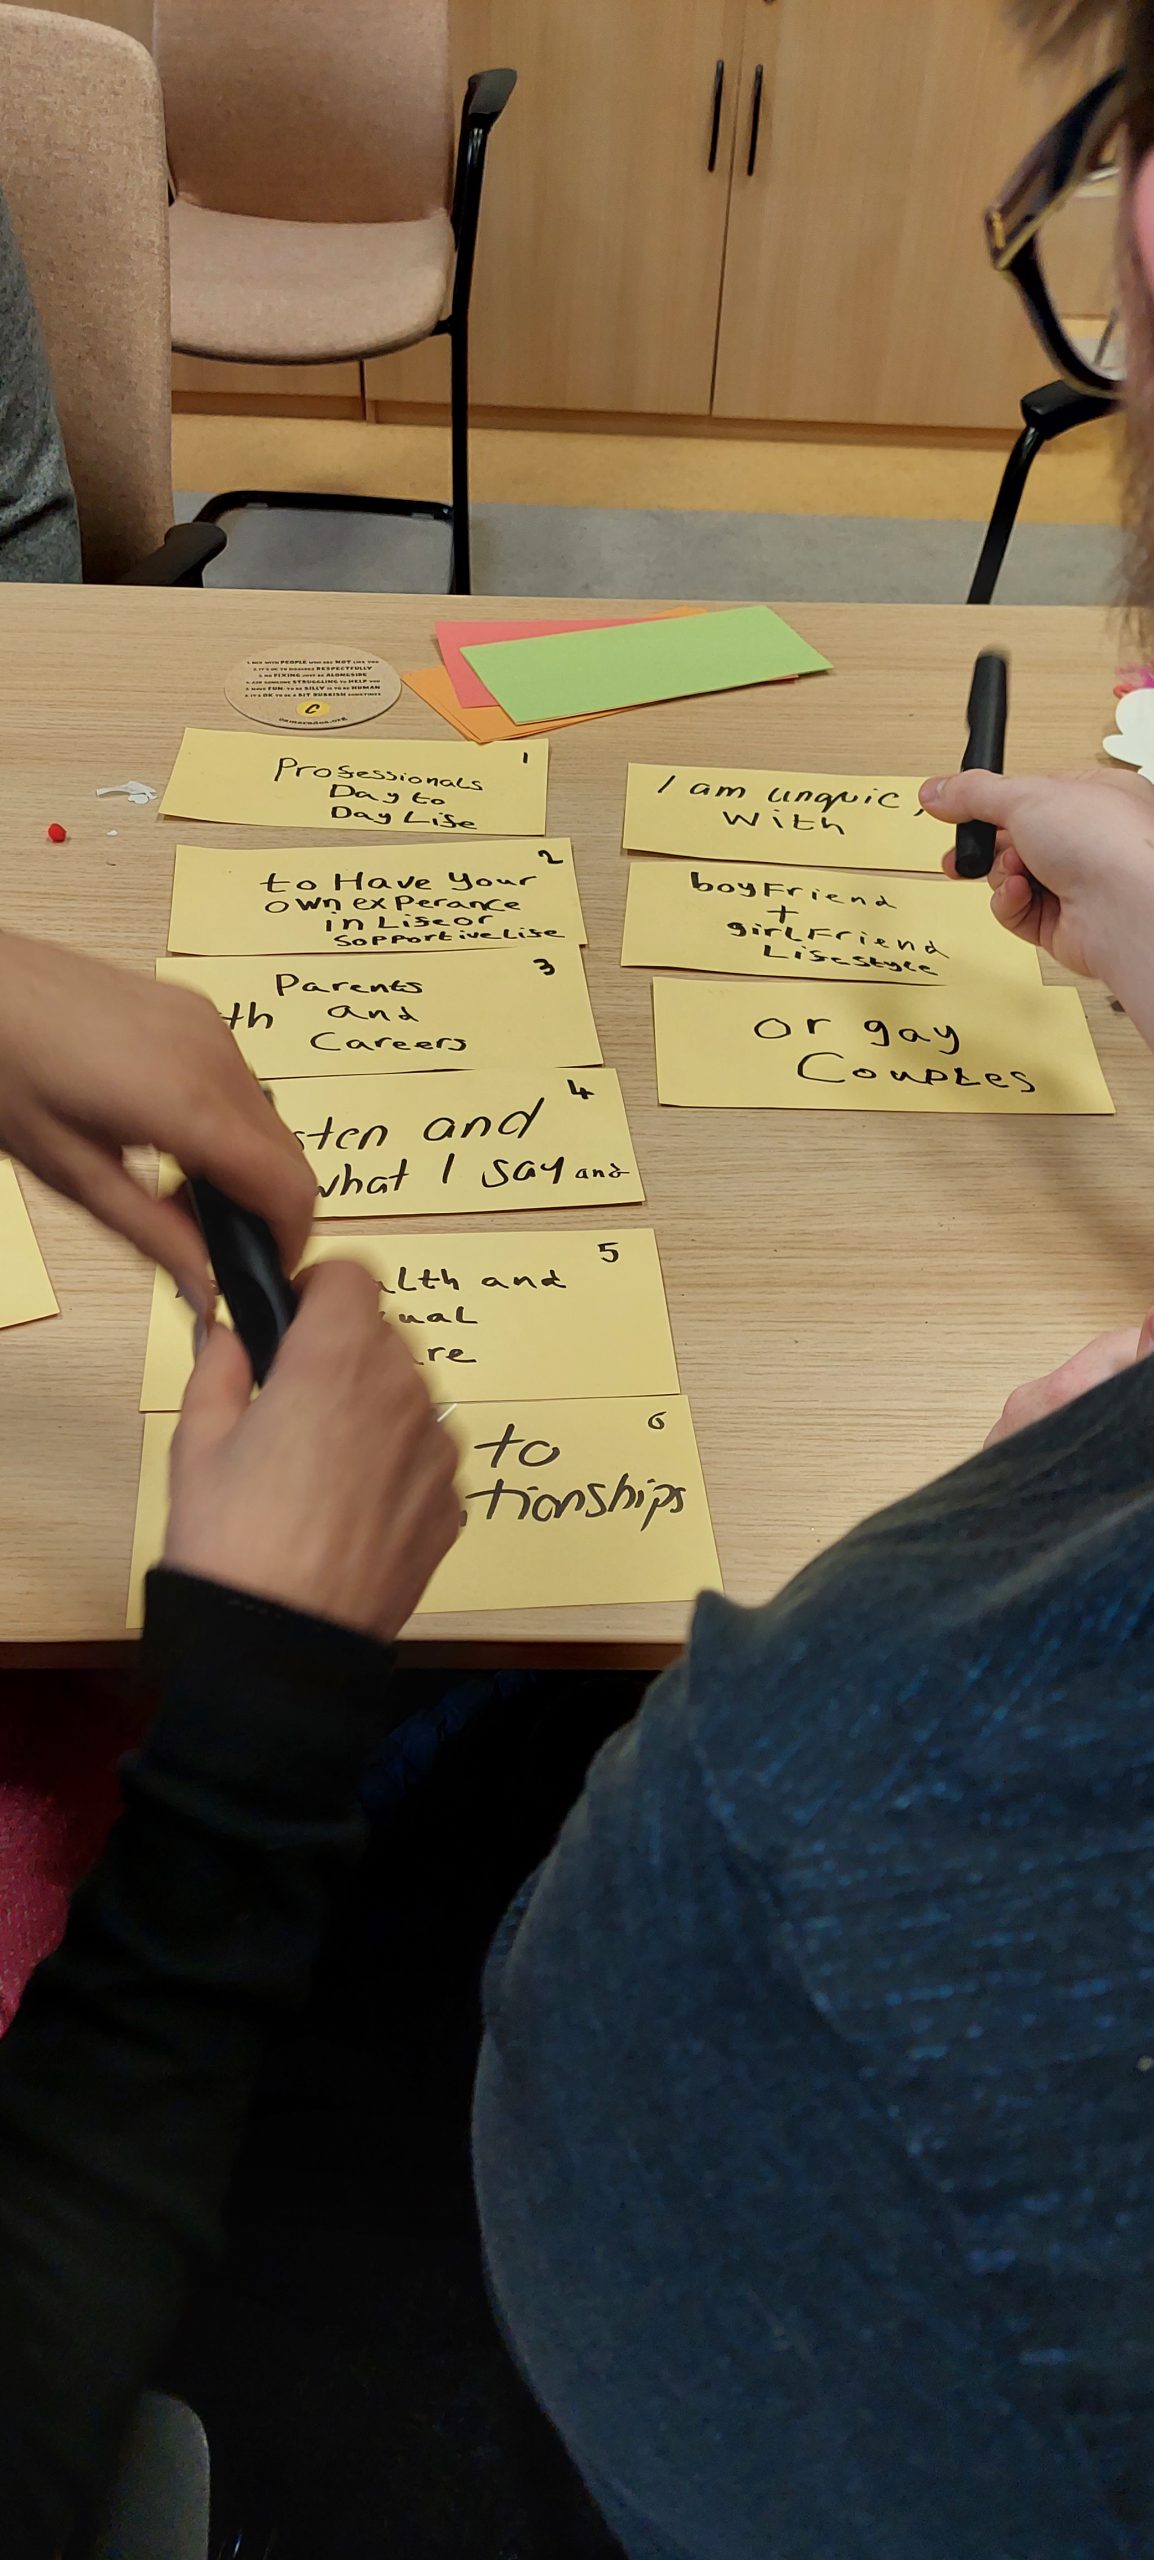 1. MIX WITH PEOPLE WHO ARE NOT LIKE YOU
2. IT'S OK TO DISAGREE RESPECTFULLY
3. NO FIXING JUST BE ALONGSIDE
4. ASK SOMEONE STRUGGLING TO HELP YOU
5. HAVE FUN: TO BE SILLY IS TO BE HUMAN
6. IT'S OK TO BE A BIT RUBBISH SOMETIMES
C
camerados.org
1
Professionals
Day to
Day Life
2
to Have Your
own experance
in Life or
sopportive Life
3
Parents
and
Careers
4
and
what I say and
5
and
6
to
I am unquic,
With
boyFriend
+
girlFriend
Lifestyle
Or gay
Couples